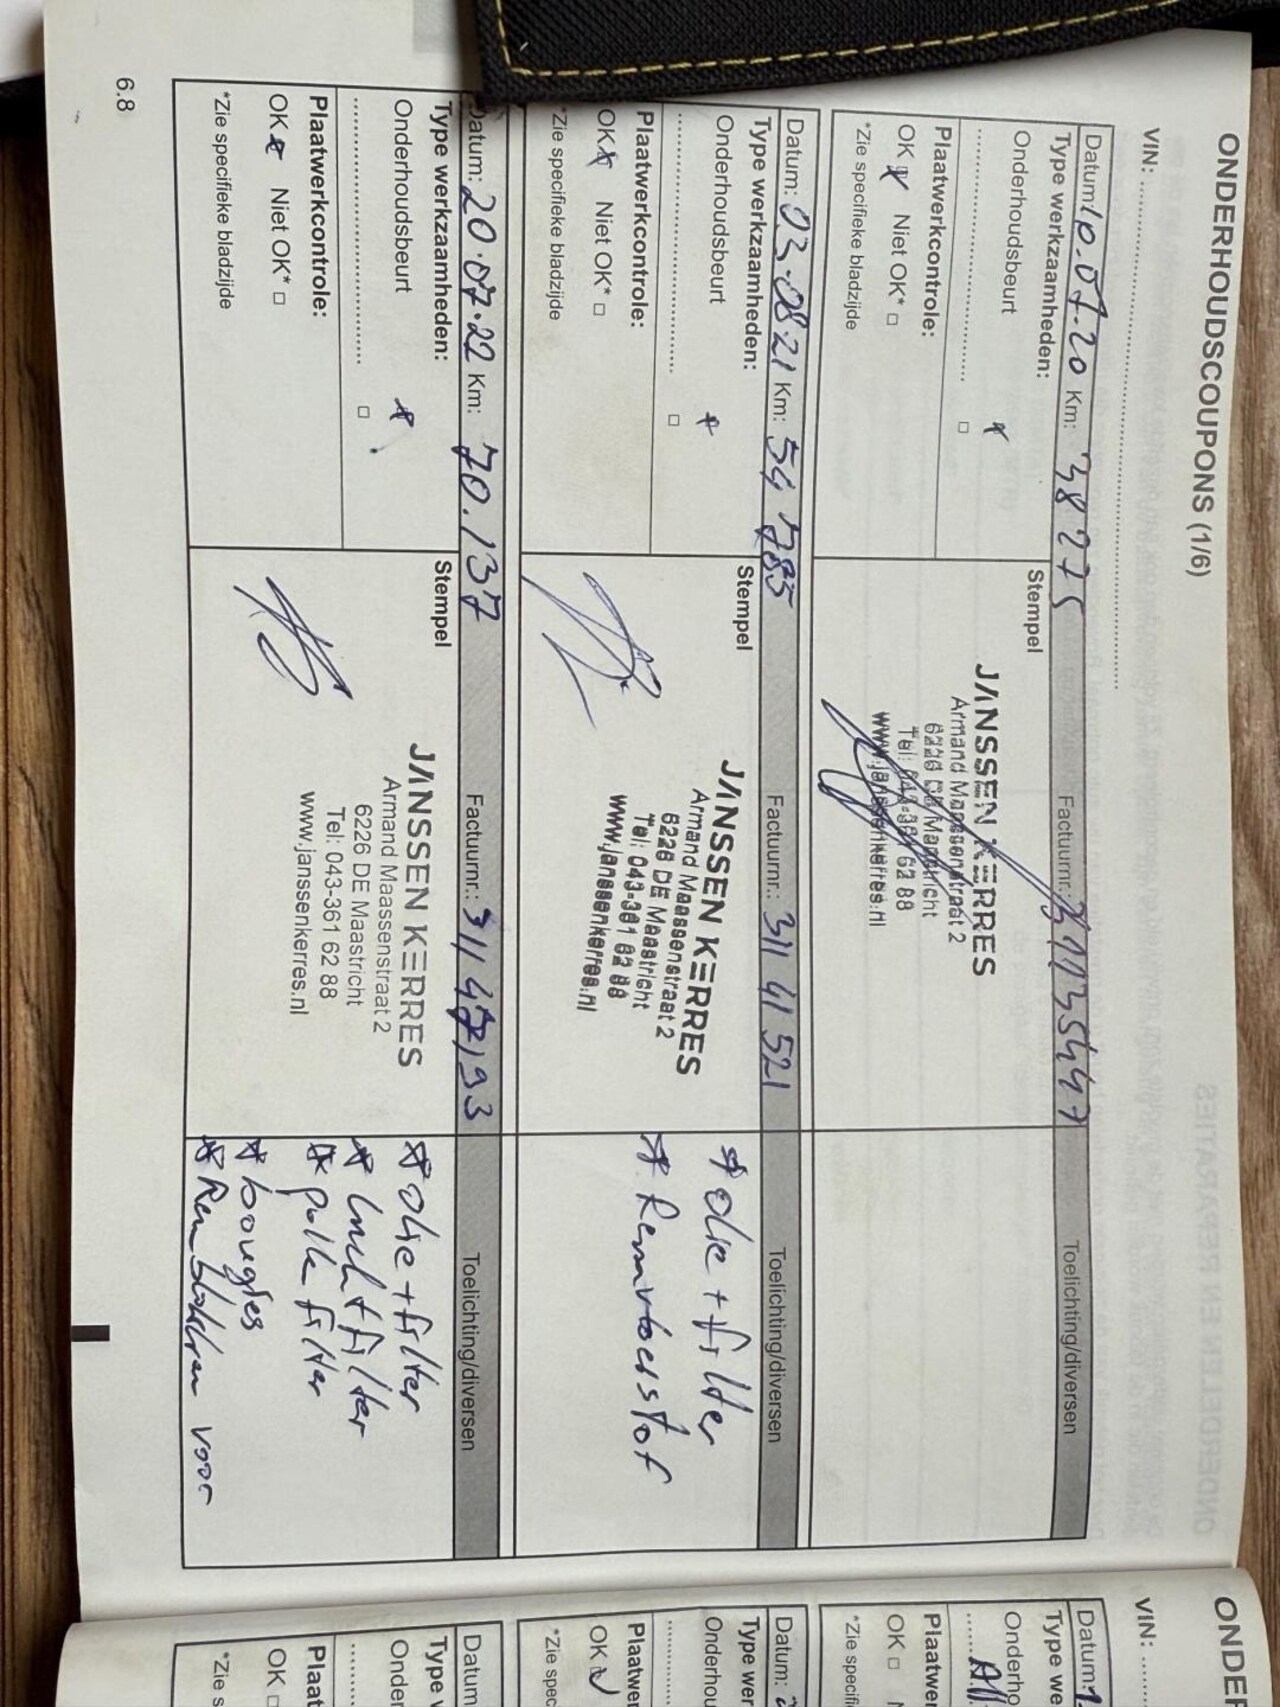 ONDERHOUDSCOUPONS (1/6)
VIN: ..........
Datum: 10.07.20 Km: 38275 Factuurnr.: 31135447 Toelichting/diversen
Type werkzaamheden:
Onderhoudsbeurt
Plaatwerkcontrole:
OK Niet OK* □
*Zie specifieke bladzijde
Stempel
JANSSEN KERRES
Armand Maassenstraat 2
6226 DE Maastricht
Tel: 043-361 62 88
www.janssenkerres.nl
Datum: 03.08.21 Km: 54785 Factuurnr.: 31141521 Toelichting/diversen
Type werkzaamheden:
Onderhoudsbeurt
Plaatwerkcontrole:
OK Niet OK* □
*Zie specifieke bladzijde
Stempel
JANSSEN KERRES
Armand Maassenstraat 2
6226 DE Maastricht
Tel: 043-361 62 88
www.janssenkerres.nl
* olie + filter
* Remvloeistof
Datum: 20.07.22 Km: 70.137 Factuurnr.: 31147193 Toelichting/diversen
Type werkzaamheden:
Onderhoudsbeurt
Plaatwerkcontrole:
OK Niet OK* □
*Zie specifieke bladzijde
Stempel
JANSSEN KERRES
Armand Maassenstraat 2
6226 DE Maastricht
Tel: 043-361 62 88
www.janssenkerres.nl
* olie + filter
* Luchtfilter
* pollenfilter
* bougies
* Remblokken voor
6.8
ONDER
VIN: ......
Datum: 1
Type we
Onderho
Plaatwer
OK □
*Zie specifi
Datum: 2
Type wer
Onderhou
Plaatwer
OK
*Zie spec
Datum
Type w
Onder
Plaat
OK □
*Zie s